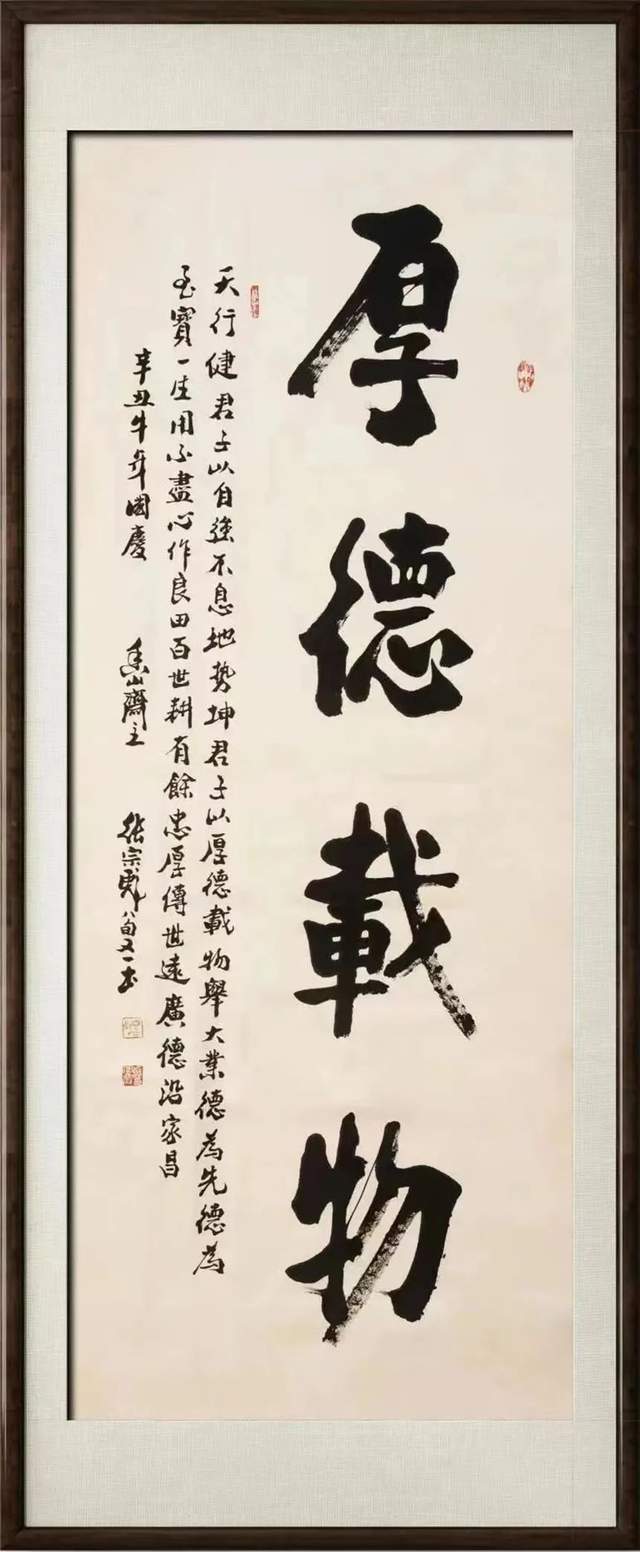 厚德載物
天行健君子以自強不息地勢坤君子以厚德載物舉大業德為先德為
至寶一生用不盡心作良田百世耕有餘忠厚傳世遠廣德沿家昌
辛丑牛年國慶
香山齋主
張宗彪八旬又一書